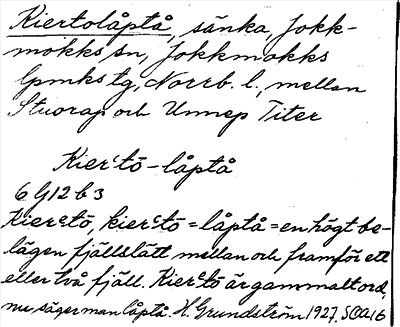 Kiertolåptå, sänka, Jokk-
mokks sn, Jokkmokks
lpmks tg, Norrb. l., mellan
Stuorap och Unnep Titer
Kierᶜtō-låptå
6 G12 b 3
Kierᶜtō, kierᶜtō = låptå = en högt be-
lägen fjällslätt mellan och framför ett
eller två fjäll. Kierᶜtō är gammalt ord,
nu säger man låptå. H. Grundström 1927. SOA 16